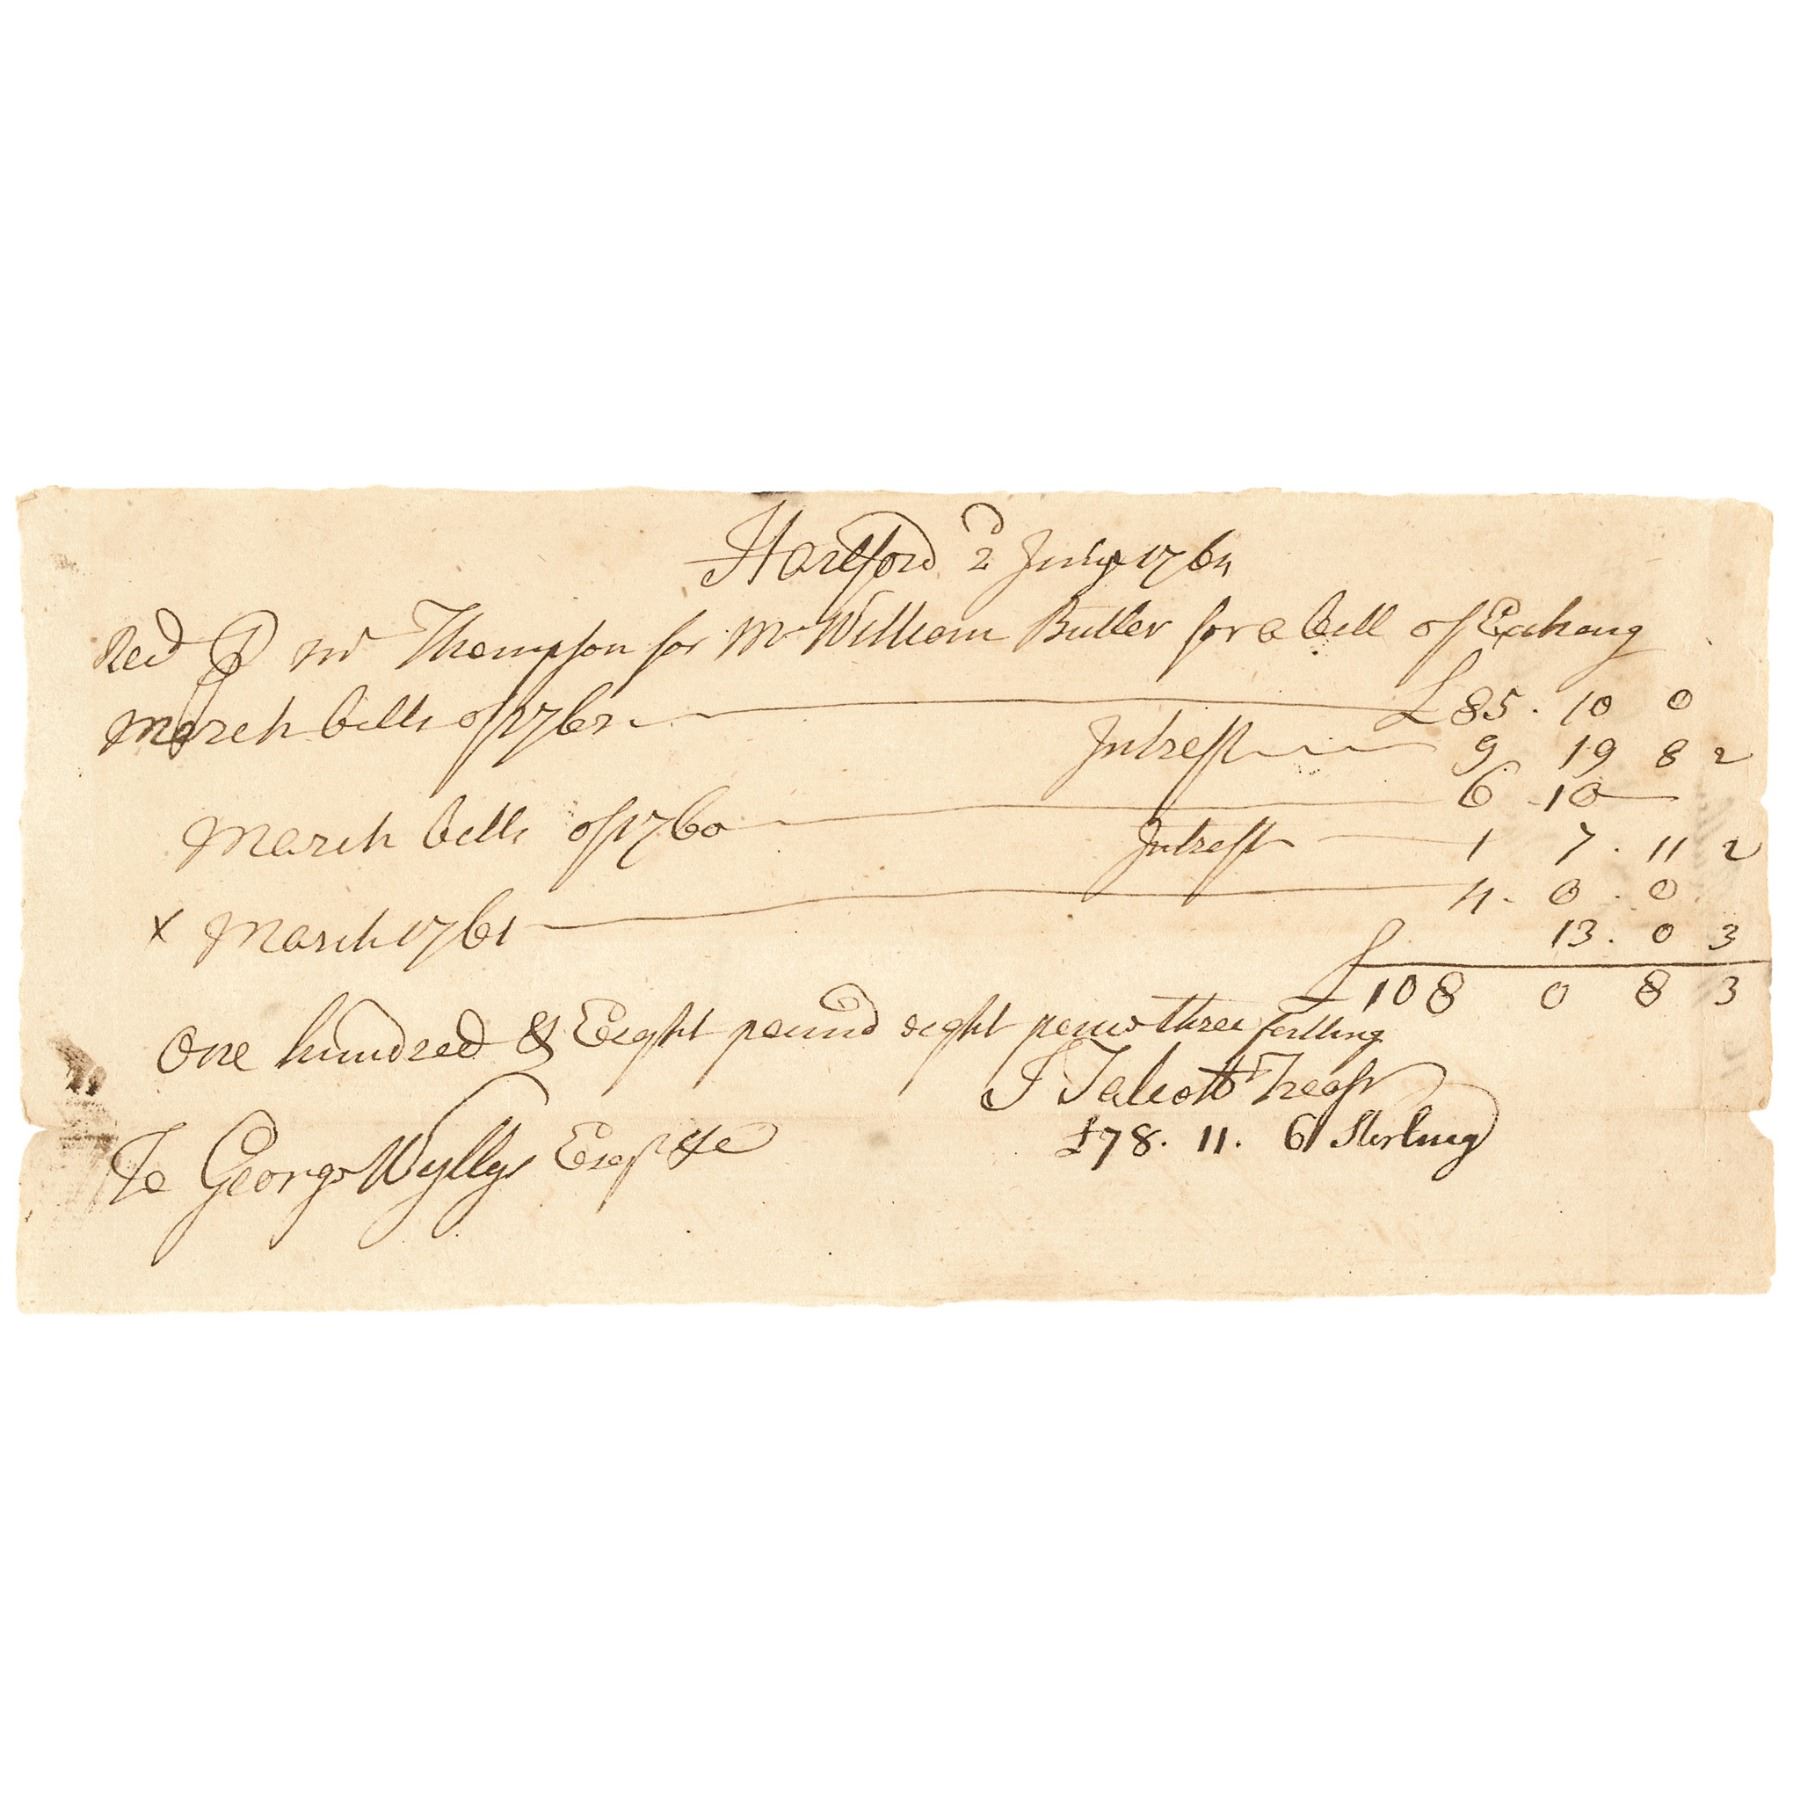 Hartford 2d July 1764
Recd ⅌ mr Thompson for Mr William Butler for a bill of Exchang
March bills of 1762 £85. 10 0
Intrest 9 19 8 2
March bills of 1760 6 10
Intrest 1 7. 11 2
x March 1761 4. 0. 0
13. 0 3
£108 0 8 3
One hundred & Eight pound eight penc three farthing
J Talcott Treasr
£78. 11. 6 Sterling
To George Wyllys Esqr &c